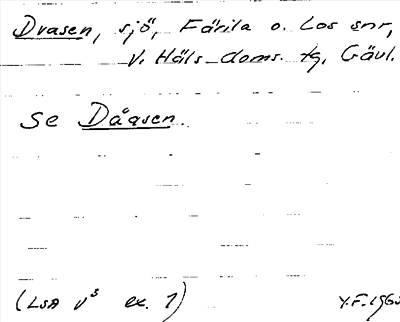 Dvasen, sjö, Färila o. Los snr,
V. Häls. doms. tg, Gävl.
Se Dåasen.
(LSA V⁵ ex. 1) Y.F.196